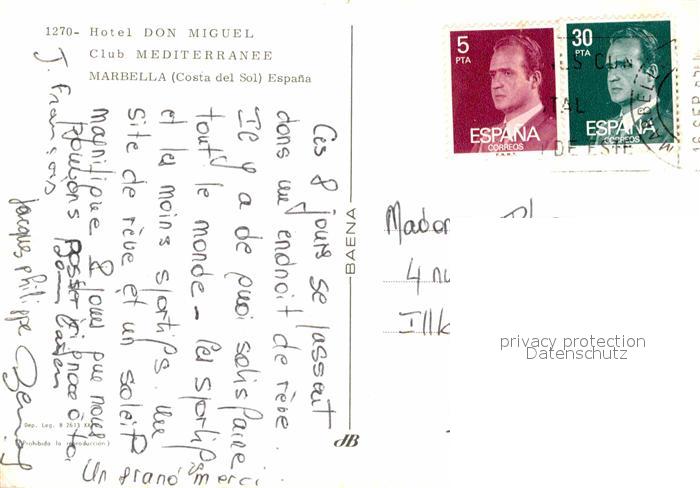 1270- Hotel DON MIGUEL
Club MEDITERRANEE
MARBELLA (Costa del Sol) España
Ces 8 jours se passent
dans un endroit de rêve.
Il y a de quoi satisfaire
tout le monde - les sportifs
et les moins sportifs. Un
site de rêve et un soleil
magnifique 8 jours que nous
pouvons passer ici grace à toi
Un grand merci.
J. François
Jacques Philippe
BAENA
Dep. Leg. B 2613
(Prohibida la reproducción)
5
PTA
ESPAÑA
CORREOS
30
PTA
ESPAÑA
CORREOS
DE ESTE
MARBELLA
16 SEP
4
privacy protection
Datenschutz